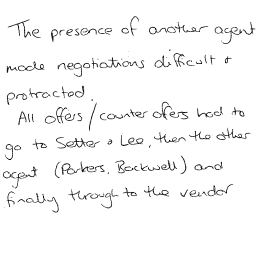 The presence of another agent
made negotiations difficult &
protracted.
All offers / counter offers had to
go to Setter & Lee, then the other
agent (Parkers, Backwell) and
finally through to the vendor